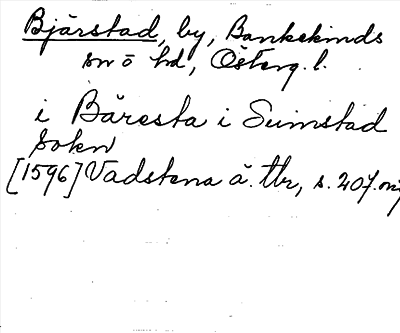 Bjärstad, by, Bankekinds
sn o hd, Österg. l.
i Båresta i Suimstad
Sokn
[1596] Vadstena ä. tbr, s. 207.